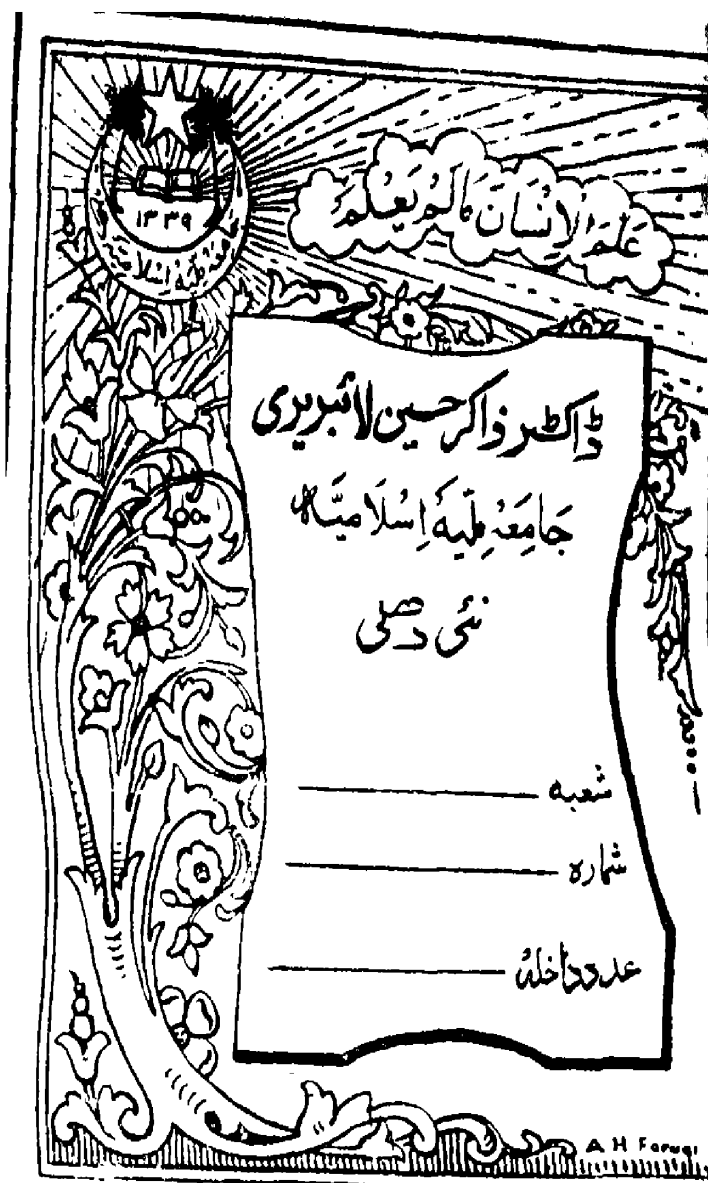 ۱۳۳۹
جامعہ ملیہ اسلامیہ
عَلَّمَ الْاِنْسَانَ مَالَمْ يَعْلَمْ
ڈاکٹر ذاکر حسین لائبریری
جَامِعَہ مِلّیہ اِسْلَامیَّہ
نئی دھلی
شعبہ
شمارہ
عدد داخلہ
A H Faruqi